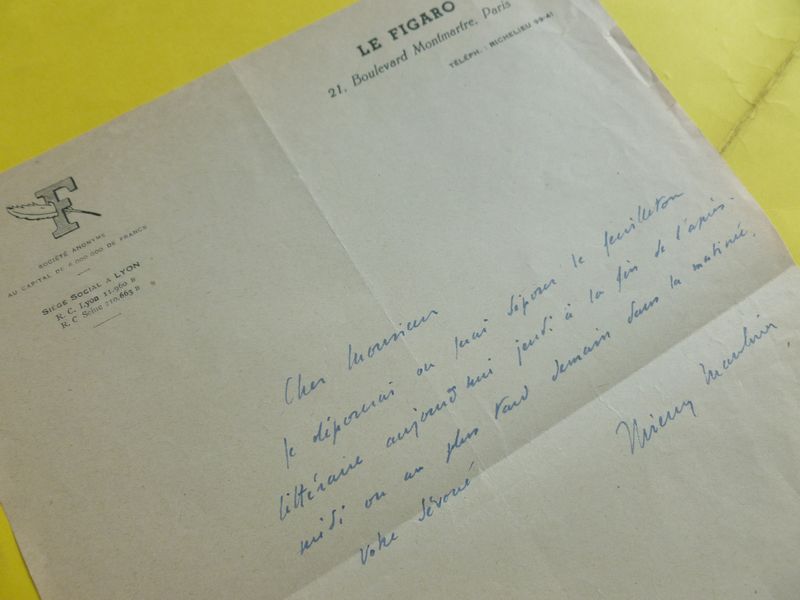 LE FIGARO
21, Boulevard Montmartre, Paris
TÉLÉPH. : RICHELIEU 99-41
F
SOCIÉTÉ ANONYME
AU CAPITAL DE 6.000.000 DE FRANCS
SIÈGE SOCIAL A LYON
R. C. Lyon 11.960 B
R. C Seine 210.663 B
Cher Monsieur
je déposerai ou ferai déposer le feuilleton
littéraire aujourd'hui jeudi à la fin de l'après-
midi ou au plus tard demain dans la matinée.
Votre dévoué
Thierry Maulnier